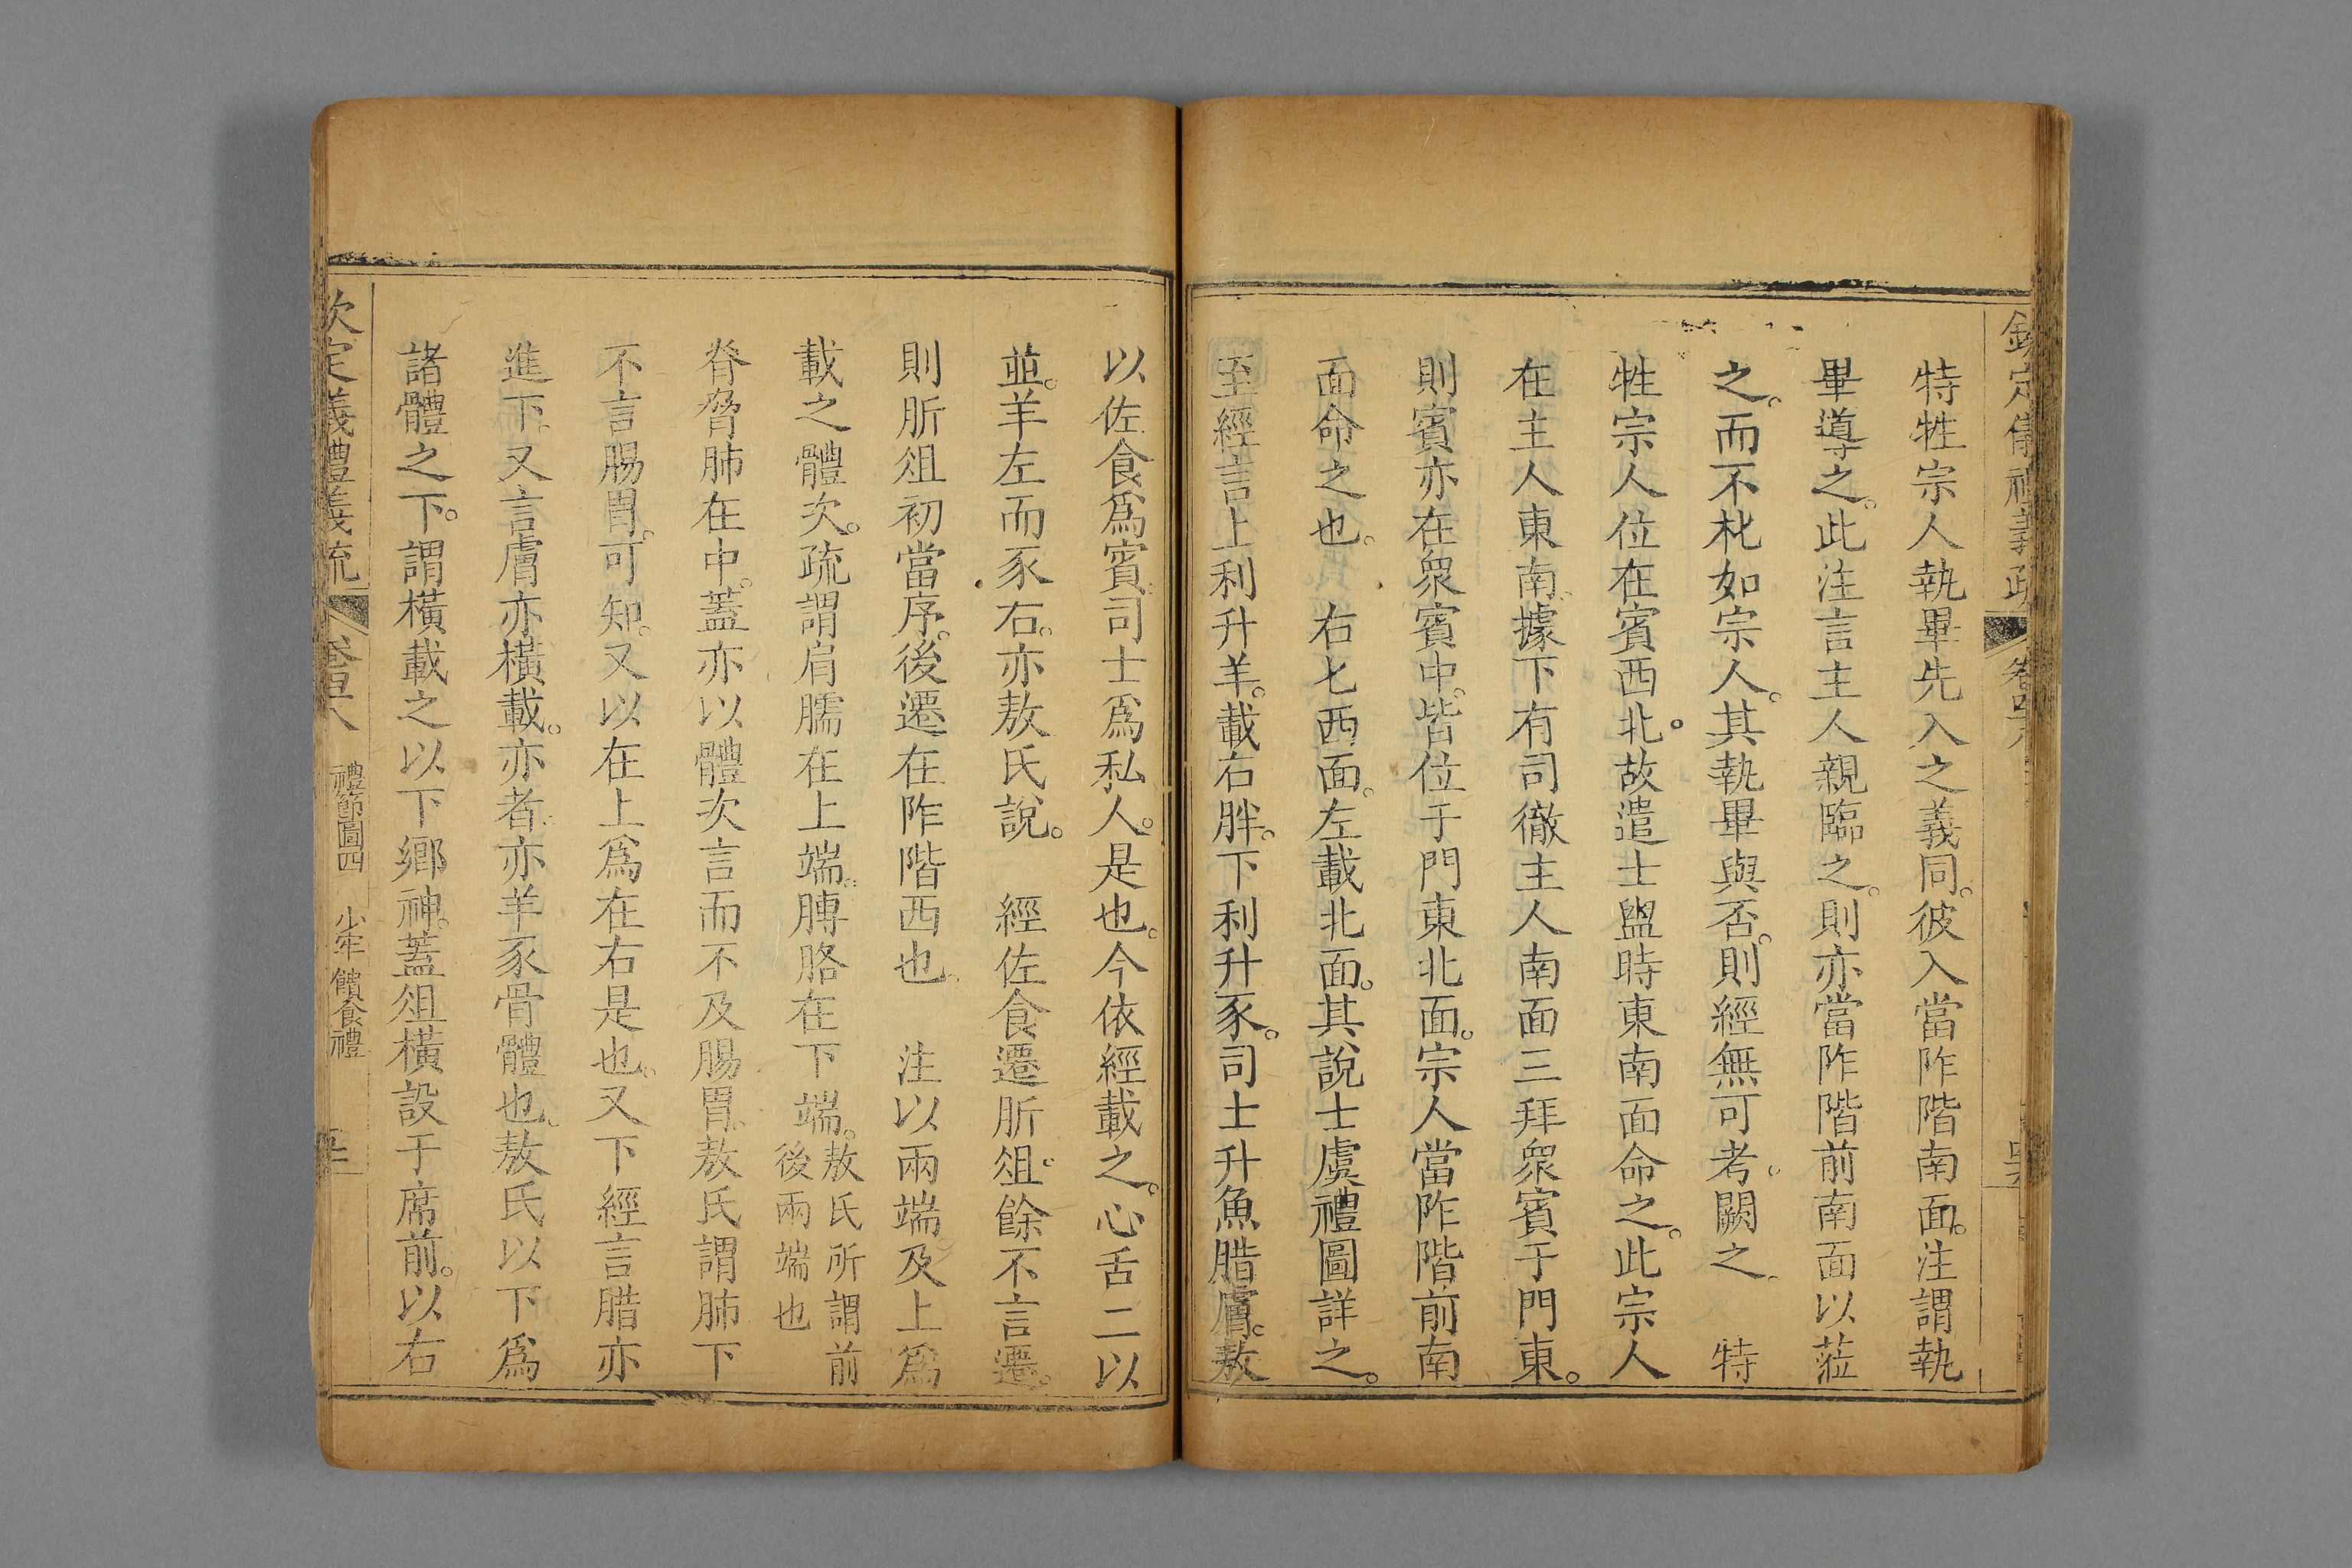 特牲宗人執畢先入之義同。彼入當阼階南面。注謂執
畢導之。此注言主人親臨之。則亦當阼階前南面以蒞
之。而不朼如宗人。其執畢與否。則經無可考。闕之　特
牲宗人位在賓西北。故遣士盥時東南面命之。此宗人
在主人東南。據下有司徹主人南面三拜衆賓于門東。
則賓亦在衆賓中。皆位于門東北面。宗人當阼階前南
面命之也。　右匕西面。左載北面。其說士虞禮圖詳之。
至經言上利升羊。載右胖。下利升豕。司士升魚腊膚。敖
以佐食爲賓。司士爲私人。是也。今依經載之。心舌二以
並。羊左而豕右。亦敖氏說。　經佐食遷肵俎。餘不言遷。
則肵俎初當序。後遷在阼階西也　注以兩端及上爲
載之體次。疏謂肩臑在上端。膊胳在下端。敖氏所謂前後兩端也
脊脅肺在中。蓋亦以體次言而不及腸胃。敖氏謂肺下
不言腸胃。可知。又以在上爲在右是也。又下經言腊亦
進下。又言膚亦橫載。亦者。亦羊豕骨體也。敖氏以下爲
諸體之下。謂橫載之以下鄉神。蓋俎橫設于席前。以右
欽定儀禮義疏　卷四十八　禮節圖四　少牢饋食禮